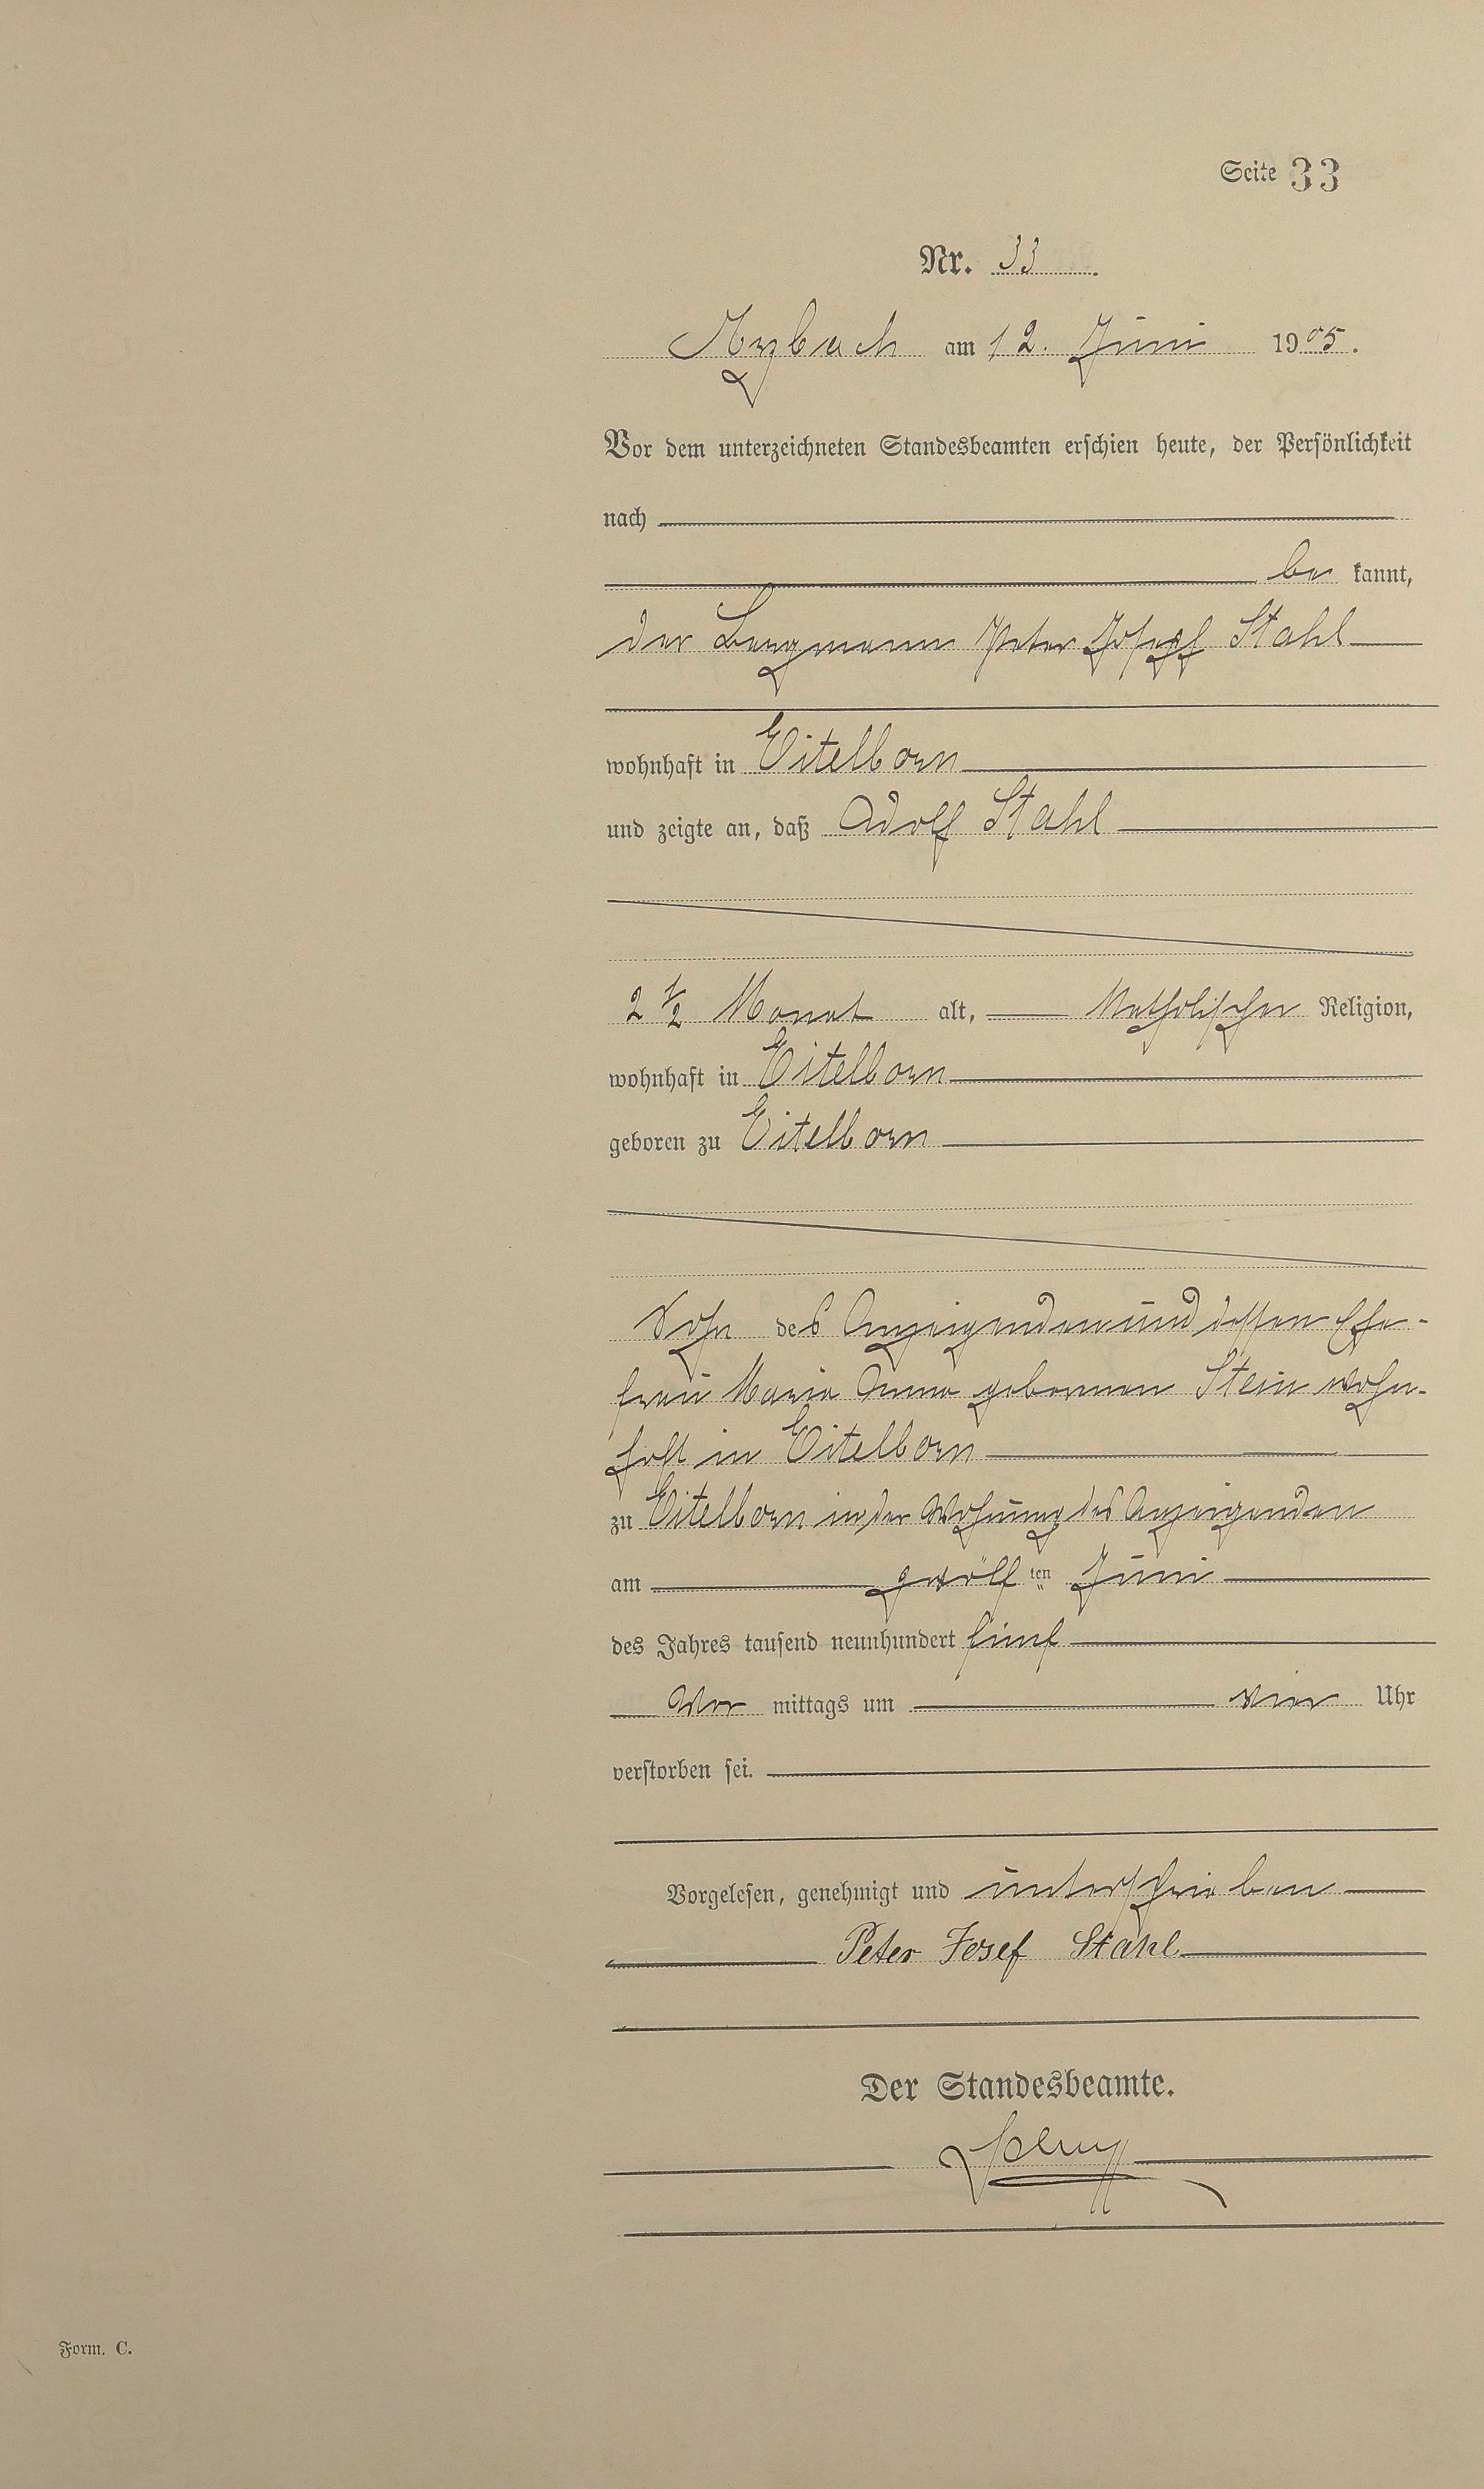 Seite 33
Nr. 33
Arzbach am 12. Juni 1905.
Vor dem unterzeichneten Standesbeamten erschien heute, der Persönlichkeit
nach
be kannt,
der Bergmann Peter Josepf Stahl
wohnhaft in Eitelborn
und zeigte an, daß Adolf Stahl
2 1/2 Monat alt, katholischer Religion,
wohnhaft in Eitelborn
geboren zu Eitelborn
Sohn des Anzeigenden und dessen Ehe-
frau Maria Anna geborenen Stein wohn-
haft in Eitelborn
zu Eitelborn in der Wohnung des Anzeigenden
am zwölf ten Juni
des Jahres tausend neunhundert fünf
Vor mittags um vier Uhr
verstorben sei.
Vorgelesen, genehmigt und unterschrieben
Peter Josef Stahl
Der Standesbeamte.
Form. C.